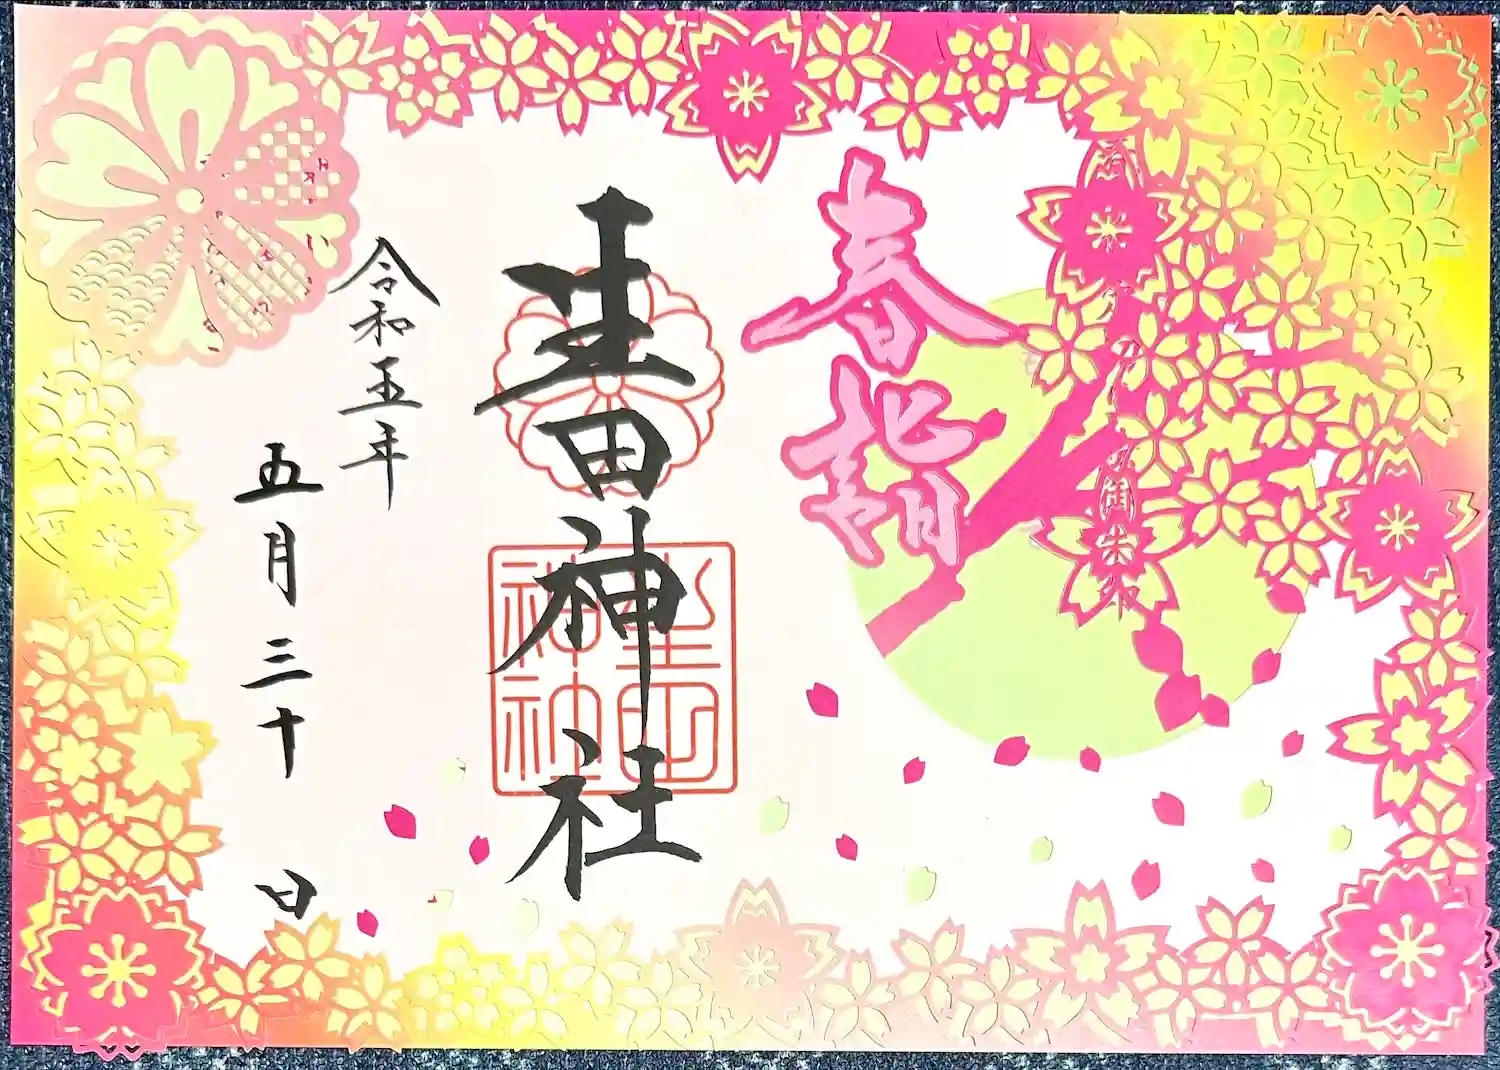 春詣
生田神社
生田
神社
令和五年
五月三十日